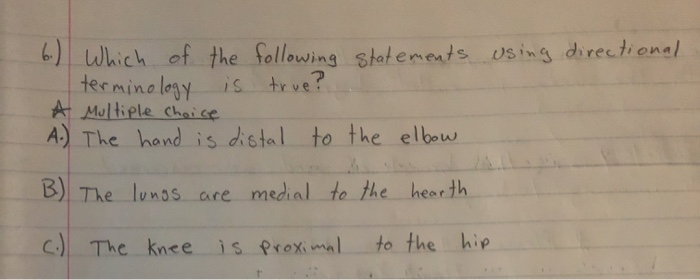 6.) Which of the following statements using directional
terminology is true?
A Multiple choice
A.) The hand is distal to the elbow
B) The lungs are medial to the hearth
C.) The knee is proximal to the hip